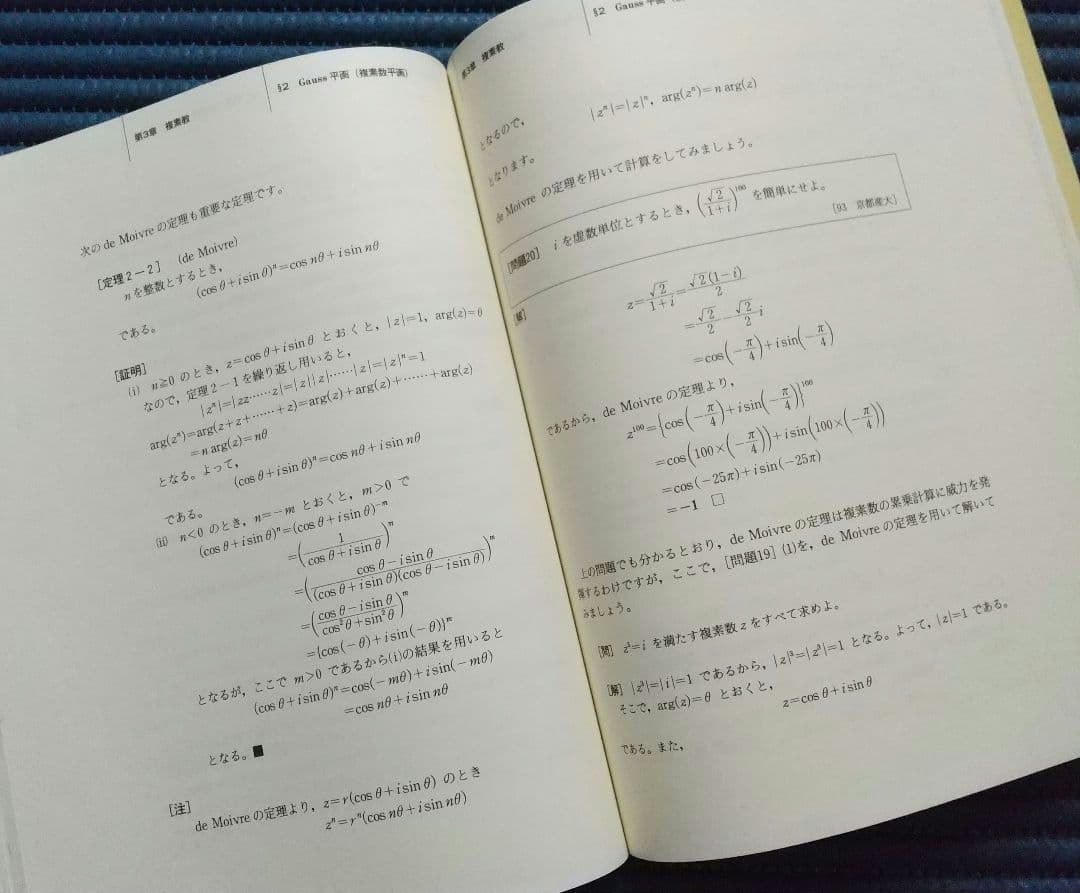 第3章 複素数
§2 Gauss 平面 (複素数平面)
次の de Moivre の定理も重要な定理です。
[定理2−2] (de Moivre)
n を整数とするとき,
(cos θ+i sin θ)ⁿ=cos nθ+i sin nθ
である。
[証明]
(i) n≧0 のとき, z=cos θ+i sin θ とおくと, |z|=1, arg(z)=θ
なので, 定理2−1を繰り返し用いると,
|zⁿ|=|zz……z|=|z||z|……|z|=|z|ⁿ=1
arg(zⁿ)=arg(z+z+……+z)=arg(z)+arg(z)+……+arg(z)
=n arg(z)=nθ
となる。よって,
(cos θ+i sin θ)ⁿ=cos nθ+i sin nθ
である。
(ii) n<0 のとき, n=−m とおくと, m>0 で
(cos θ+i sin θ)ⁿ=(cos θ+i sin θ)⁻ᵐ
=(1/(cos θ+i sin θ))ᵐ
=((cos θ−i sin θ)/((cos θ+i sin θ)(cos θ−i sin θ)))ᵐ
=((cos θ−i sin θ)/(cos²θ+sin²θ))ᵐ
={cos(−θ)+i sin(−θ)}ᵐ
となるが, ここで m>0 であるから(i)の結果を用いると
(cos θ+i sin θ)ⁿ=cos(−mθ)+i sin(−mθ)
=cos nθ+i sin nθ
となる。■
[注]
de Moivre の定理より, z=r(cos θ+i sin θ) のとき
zⁿ=rⁿ(cos nθ+i sin nθ)
第3章 複素数
§2 Gauss 平面
となるので,
|zⁿ|=|z|ⁿ, arg(zⁿ)=n arg(z)
となります。
de Moivre の定理を用いて計算をしてみましょう。
[問題20] i を虚数単位とするとき, (√2/(1+i))¹⁰⁰ を簡単にせよ。
[93 京都産大]
[解]
z=√2/(1+i)=√2(1−i)/2
=√2/2−√2/2 i
=cos(−π/4)+i sin(−π/4)
であるから, de Moivre の定理より,
z¹⁰⁰={cos(−π/4)+i sin(−π/4)}¹⁰⁰
=cos(100×(−π/4))+i sin(100×(−π/4))
=cos(−25π)+i sin(−25π)
=−1 □
上の問題でも分かるとおり, de Moivre の定理は複素数の累乗計算に威力を発
揮するわけですが, ここで, [問題19] (1)を, de Moivre の定理を用いて解いて
みましょう。
[問] z³=i を満たす複素数 z をすべて求めよ。
[解] |z³|=|i|=1 であるから, |z|³=|z³|=1 となる。よって, |z|=1 である。
そこで, arg(z)=θ とおくと,
z=cos θ+i sin θ
である。また,